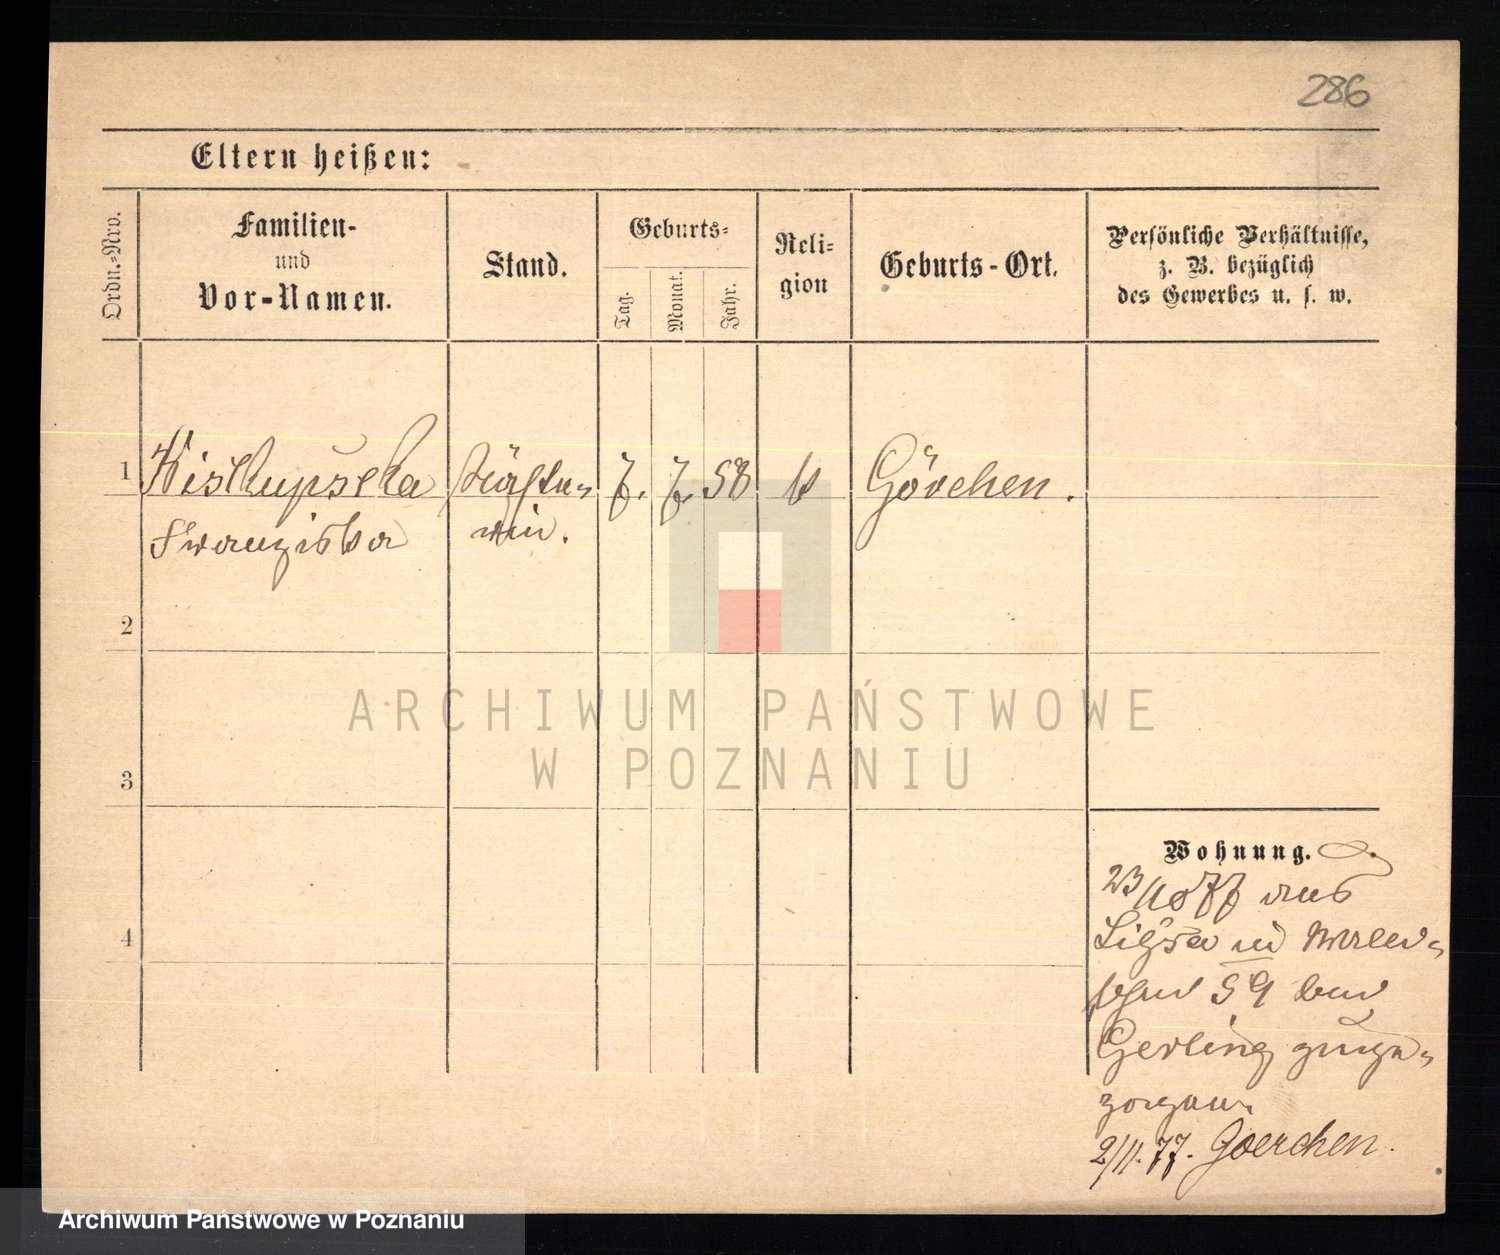 286
Eltern heißen:
Ordn.-Nro.
Familien-
und
Vor-Namen.
Stand.
Geburts-
Tag.
Monat.
Jahr.
Reli-
gion
Geburts-Ort.
Persönliche Verhältnisse,
z. B. bezüglich
des Gewerbes u. s. w.
1
7. 7. 58
Görchen.
Franziska
rin.
2
3
4
ARCHIWUM PAŃSTWOWE
W POZNANIU
Wohnung.
23/10 77 aus
in
59 bei
Gerling zuge-
zogen.
2/11.77. Goerchen.
Archiwum Państwowe w Poznaniu